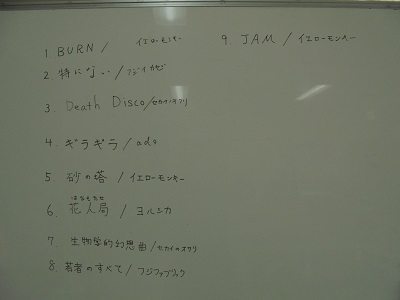 1 BURN / イエローモンキー
2 特にない / フジイカゼ
3. Death Disco / セカイノオワリ
4. ギラギラ / ado
5. 砂の塔 / イエローモンキー
はなもたせ
6. 花人局 / ヨルシカ
7. 生物学的幻想曲 / セカイノオワリ
8. 若者のすべて / フジファブリック
9. JAM / イエローモンキー